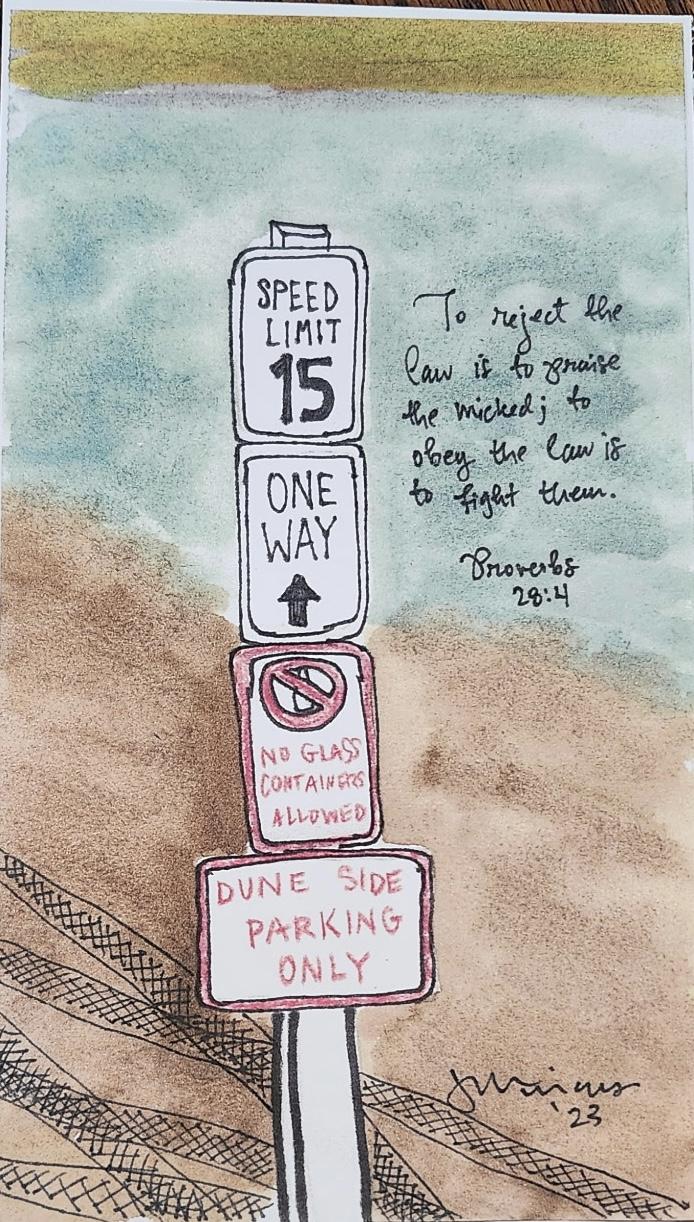 SPEED
LIMIT
15
ONE
WAY
NO GLASS
CONTAINERS
ALLOWED
DUNE SIDE
PARKING
ONLY
To reject the
law is to praise
the wicked; to
obey the law is
to fight them.
Proverbs
28:4
'23